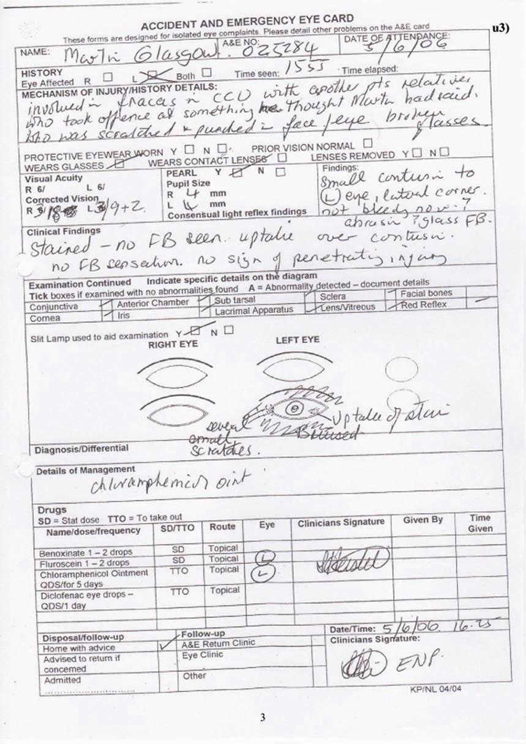 ACCIDENT AND EMERGENCY EYE CARD
These forms are designed for isolated eye complaints. Please detail other problems on the A&E card
u3)
NAME: Martin Glasgow. A&E NO: 025284 DATE OF ATTENDANCE: 5/6/06
HISTORY
Eye Affected R L Both Time seen: 1555 Time elapsed:
MECHANISM OF INJURY/HISTORY DETAILS:
involved in fracas in CCU with another pts relatives
who took offence at something he thought Martin had said.
who was scratched & punched in face / eye broken
glasses
PROTECTIVE EYEWEAR WORN Y N PRIOR VISION NORMAL
WEARS GLASSES WEARS CONTACT LENSES LENSES REMOVED Y N
Visual Acuity
R 6/ L 6/
Corrected Vision
R L 3/9+2.
PEARL Y N
Pupil Size
R 4 mm
L 4 mm
Consensual light reflex findings
Findings:
small contusion to
(L) eye, lateral corner.
not now ?
?glass FB.
Clinical Findings
Stained - no FB seen. uptake over contusion.
no FB sensation. no sign of penetrating injury
Examination Continued Indicate specific details on the diagram
Tick boxes if examined with no abnormalities found A = Abnormality detected – document details
Conjunctiva Anterior Chamber Sub tarsal Sclera Facial bones
Cornea Iris Lacrimal Apparatus Lens/Vitreous Red Reflex
Slit Lamp used to aid examination Y N
RIGHT EYE LEFT EYE
Uptake of stain
several
small
scratches.
Bruised
Diagnosis/Differential
Details of Management
chloramphenicol oint
Drugs
SD = Stat dose TTO = To take out
Name/dose/frequency SD/TTO Route Eye Clinicians Signature Given By Time Given
Benoxinate 1 – 2 drops SD Topical
Fluroscein 1 – 2 drops SD Topical L
Chloramphenicol Ointment QDS/for 5 days TTO Topical L
Diclofenac eye drops – QDS/1 day TTO Topical
Disposal/follow-up Follow-up Date/Time: 5/6/06 16.25
Home with advice A&E Return Clinic Clinicians Signature:
Advised to return if concerned Eye Clinic ENP.
Admitted Other
KP/NL 04/04
3